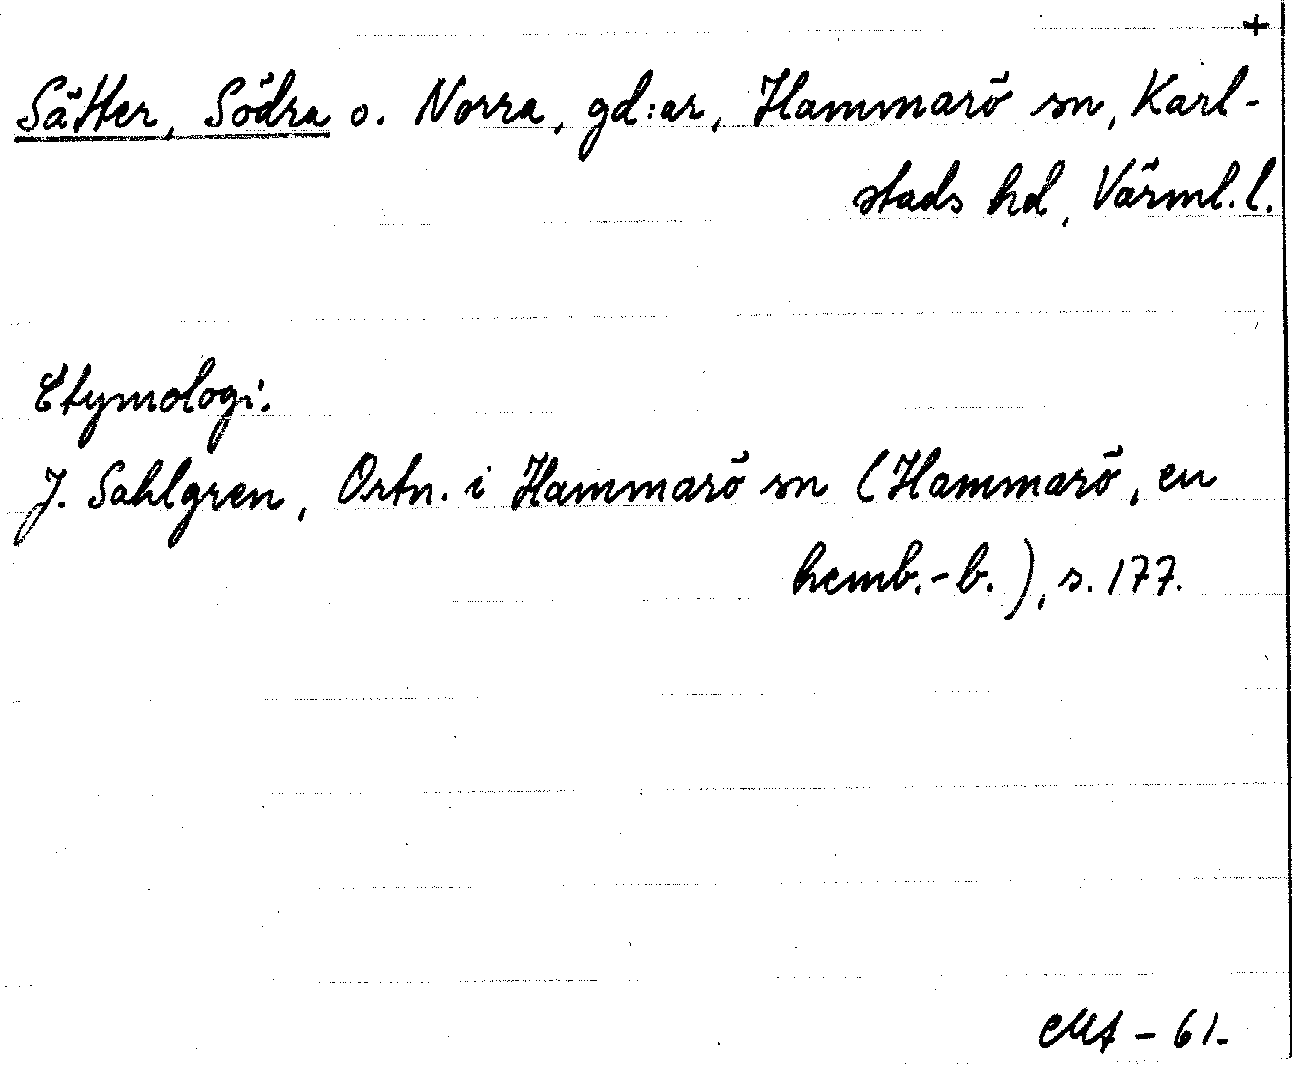 +
Sätter, Södra o. Norra, gd:ar, Hammarö sn, Karl-
stads hd, Värml. l.
Etymologi.
J. Sahlgren, Ortn. i Hammarö sn (Hammarö, en
hemb.-b.), s. 177.
MA - 61.